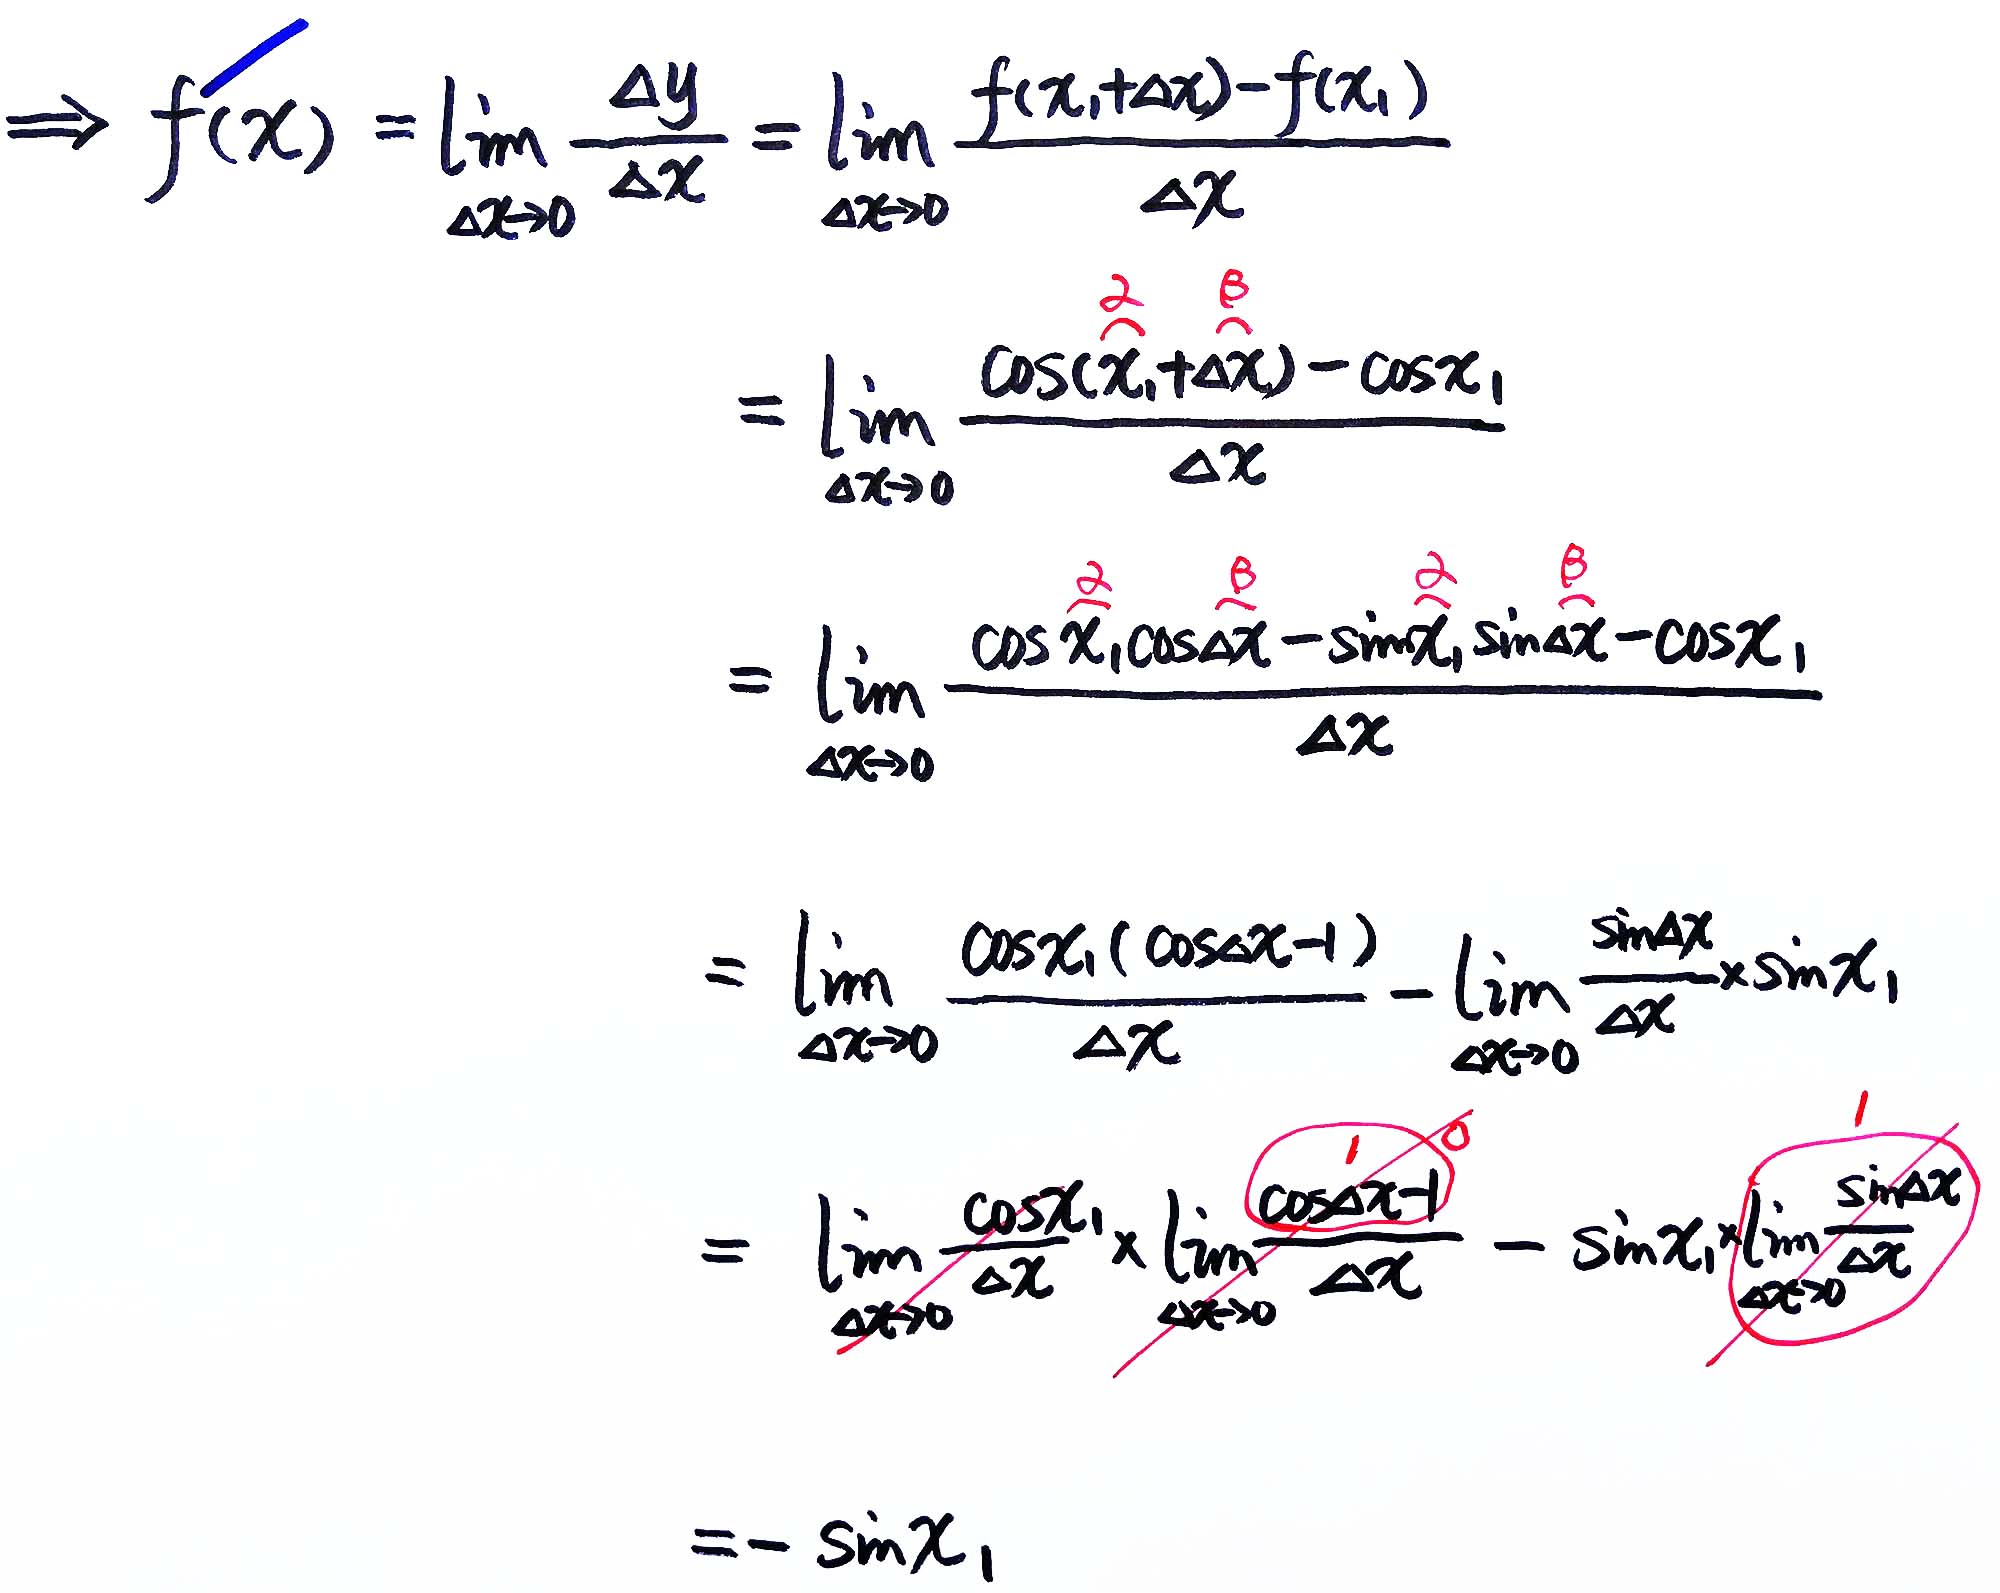 ⇒ f′(x) = lim_{Δx→0} Δy/Δx = lim_{Δx→0} (f(x₁+Δx)−f(x₁))/Δx
α β
= lim_{Δx→0} (cos(x₁+Δx)−cosx₁)/Δx
α β α β
= lim_{Δx→0} (cos x₁cosΔx−sinx₁sinΔx−cosx₁)/Δx
= lim_{Δx→0} (cosx₁(cosΔx−1))/Δx − lim_{Δx→0} sinΔx/Δx × sinx₁
1 0 1
= lim_{Δx→0} cosx₁/Δx × lim_{Δx→0} (cosΔx−1)/Δx − sinx₁ × lim_{Δx→0} sinΔx/Δx
= − sinx₁